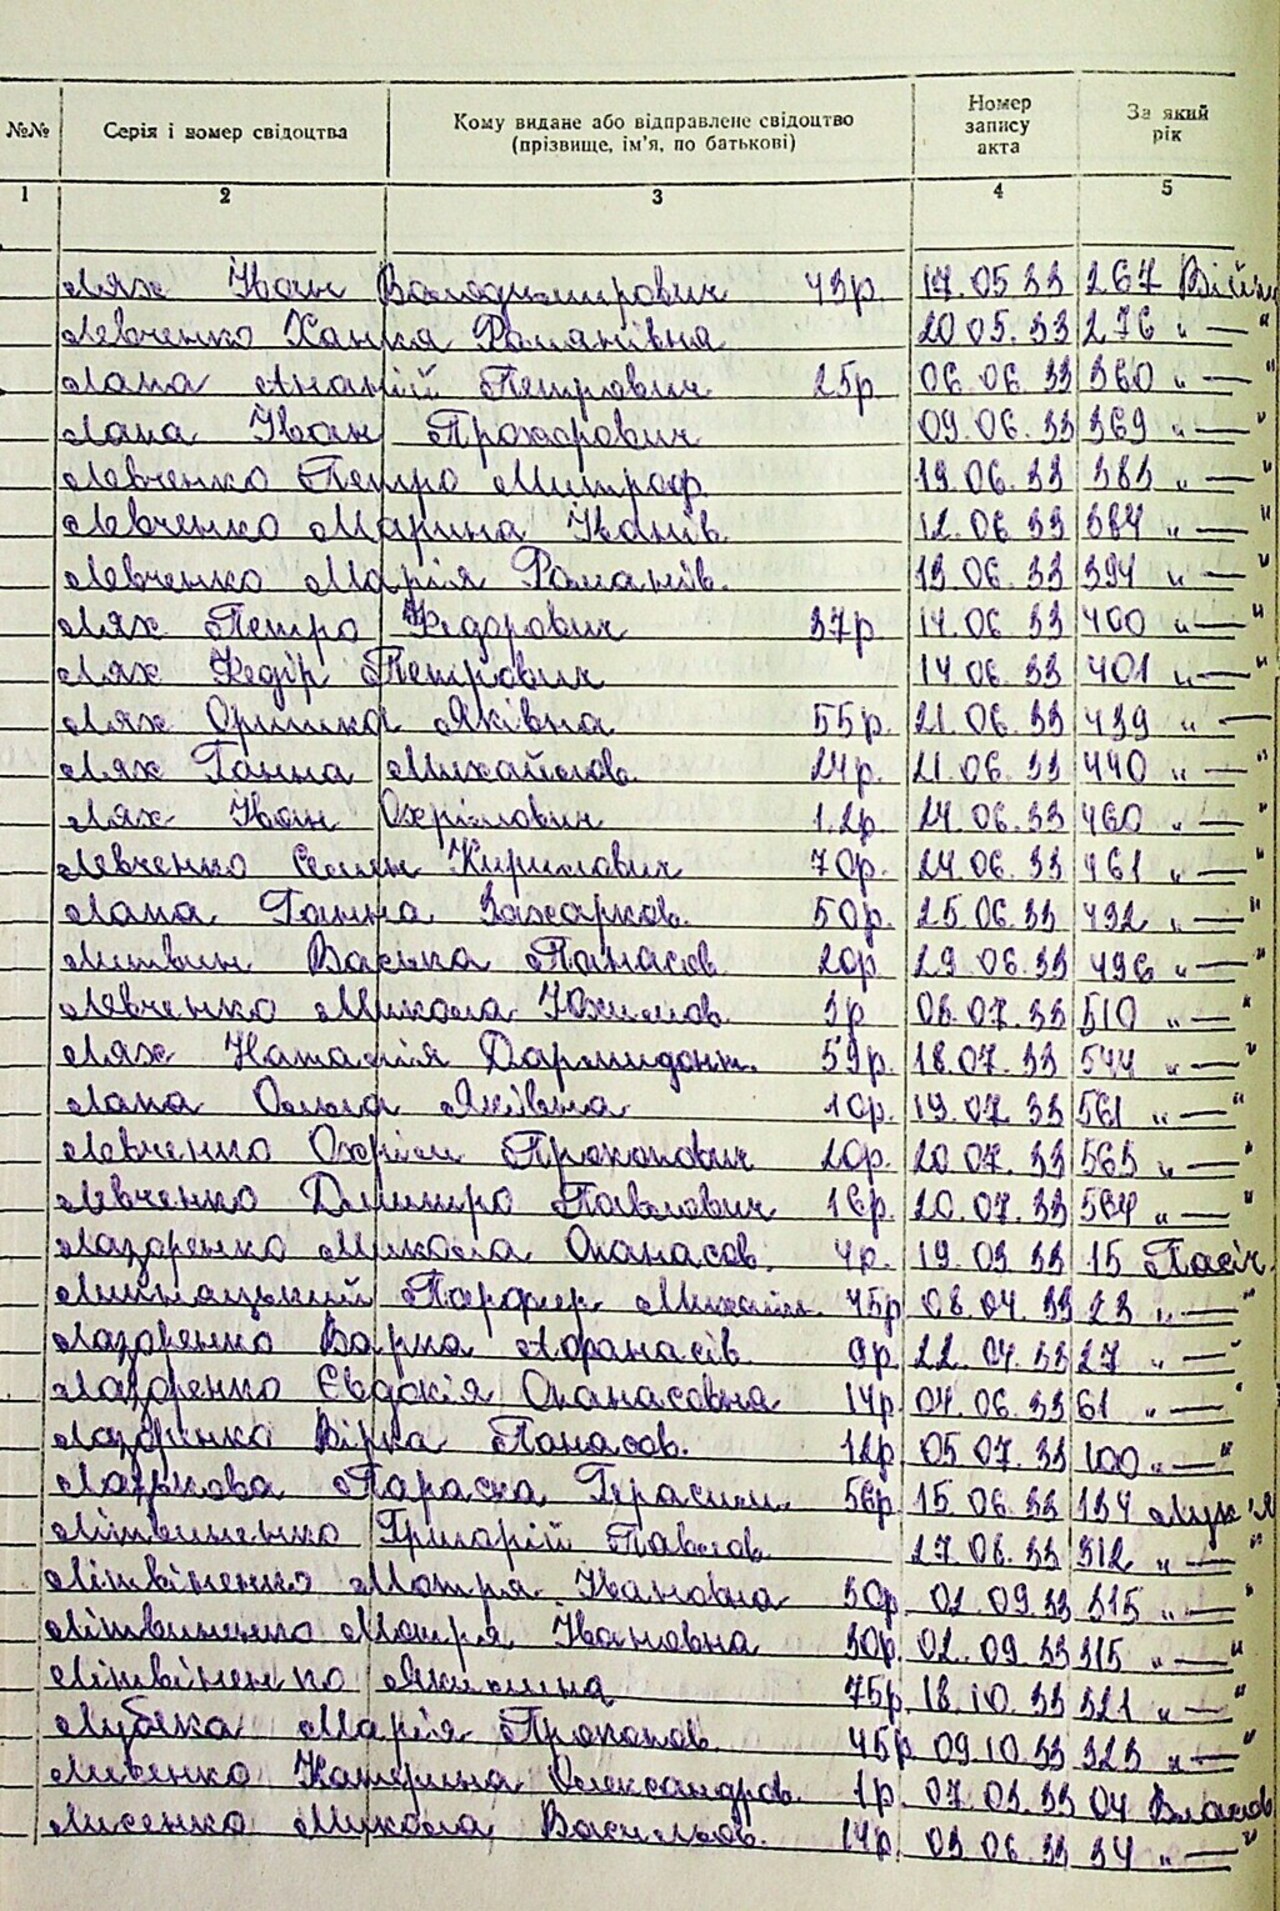 №№ Серія і номер свідоцтва Кому видане або відправлене свідоцтво (прізвище, ім'я, по батькові) Номер запису акта За який рік
1 2 3 4 5
Лях Іван Володимирович 43р. 17.05.33 267 Війт
Левченко Ханка Романівна 20.05.33 276 „—"
Лапа Ананій Петрович 25р. 06.06.33 360 „—"
Лапа Іван Прохорович 09.06.33 369 „—"
Левченко Петро Митроф. 19.06.33 383 „—"
Левченко Марина Іванів. 12.06.33 384 „—"
Левченко Марія Романів. 13.06.33 394 „—"
Лях Петро Федорович 37р. 14.06.33 400 „—"
Лях Федір Петрович 14.06.33 401 „—"
Лях Оришка Яківна 55р. 21.06.33 439 „—
Лях Ганна Михайлов. 24р. 21.06.33 440 „—"
Лях Іван Охрімович 1,2р. 24.06.33 460 „—"
Левченко Семен Кирилович 70р. 24.06.33 461 „—"
Лапа Ганна Захарков. 50р. 25.06.33 492 „—"
Литвин Васька Панасов. 20р. 29.06.33 496 „—"
Левченко Микола Юхимов. 3р 08.07.33 510 „—"
Лях Наталія Дормидонт. 59р. 18.07.33 544 „—"
Лапа Ольга Яківна 10р. 19.07.33 561 „—"
Левченко Охрім Прокопович 20р. 20.07.33 563 „—"
Левченко Дмитро Павлович 16р. 20.07.33 564 „—"
Лазоренко Микола Опанасов. 4р. 19.03.33 15 Пасіч.
Липацький Порфир Михайл. 45р 08.04.33 23 „—"
Лазоренко Варка Афанасів. 9р. 22.04.33 27 „—"
Лазоренко Євдокія Опанасовна 14р. 04.06.33 61 „—"
Лазоренко Вірка Понасов. 12р. 05.07.33 100 „—"
Лазькова Параска Герасим. 56р. 15.06.33 134 Лук'я
Літвиненко Григорій Павлов. 27.08.33 312 „—"
Літвіненко Мотря Івановна 30р. 02.09.33 315 „—"
Літвиненко Мотря Івановна 30р. 02.09.33 315 „—"
Літвіненко Якилина 75р. 18.10.33 321 „—"
Лубяка Марія Прокопов. 45р. 09.10.33 323 „—"
Лисенко Катерина Олександров. 1р. 07.03.33 04 Власов
Лисенко Микола Васильов. 14р. 03.06.33 34 „—"